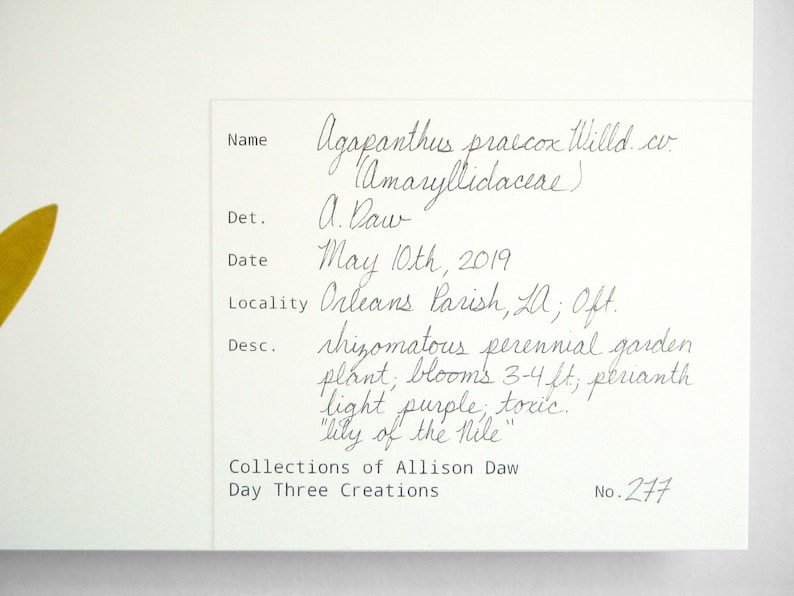 Name Agapanthus praecox Willd. cv.
(Amaryllidaceae)
Det. A. Daw
Date May 10th, 2019
Locality Orleans Parish, LA; 0ft.
Desc. rhizomatous perennial garden
plant; blooms 3-4 ft; perianth
light purple; toxic.
"lily of the Nile"
Collections of Allison Daw
Day Three Creations No. 277